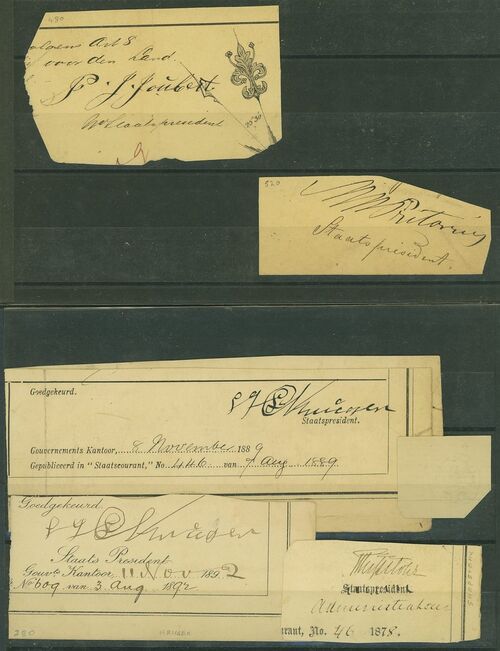 480
volgens Art 8
voor den Land.
P. J. Joubert
Staatspresident
520
MW Pretorius
Staatspresident.
Goedgekeurd.
S J P Kruger
Staatspresident.
Gouvernements Kantoor, 8 November 1889
Gepubliceerd in "Staatscourant," No. 446 van 7 Aug 1889
Goedgekeurd
S J P Kruger
Staats President
Gouvts Kantoor, 11 Nov 1892
No 609 van 3 Aug 1892
Staatspresident
Administrateur
urant, No. 46 1878.
280
KRUGER